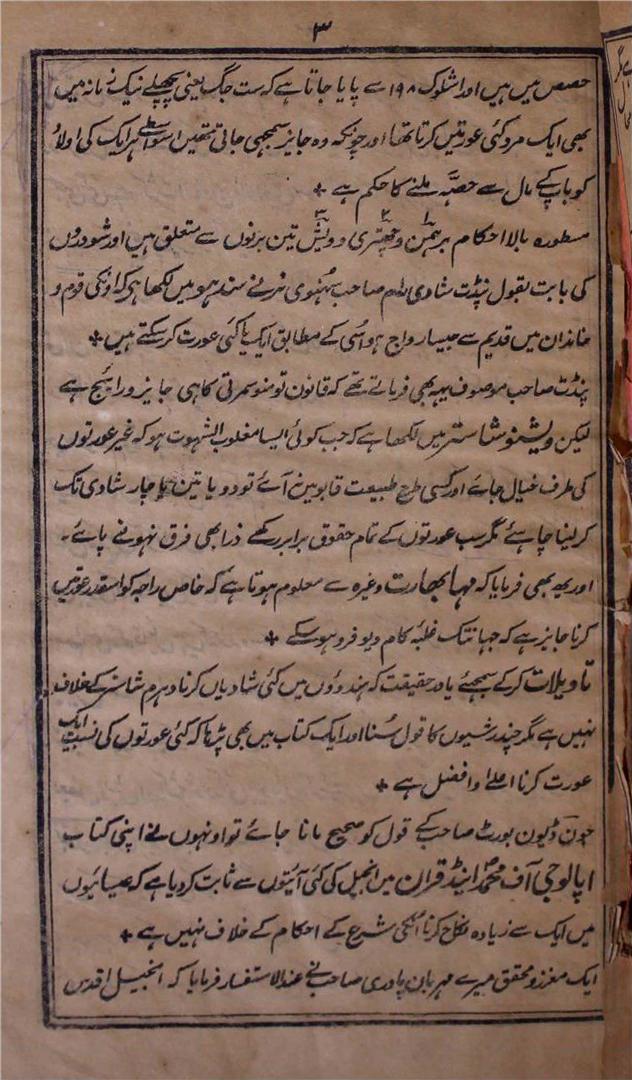 ۳
حصص میں ہیں اور اشلوک ۱۹۸ سے پایا جاتا ہے کہ ست جگ یعنی پچھلے نیک زمانہ میں
بھی ایک مرد کئی عورتیں کرتا تھا اور چونکہ وہ جایز سمجھی جاتی تھیں اسواسطے ہر ایک کی اولاد
کو باپ کے مال سے حصّہ ملنے کا حکم ہے +
مسطورہ بالا احکام برہمن و چھتری و ویش تین برنوں سے متعلق ہیں اور شودروں
کی بابت بقول پنڈت شادی رام صاحب منو جی نے لکھا ہی کہ اونکی قوم و
خاندان میں قدیم سے جیسا رواج ہو اُسی کے مطابق ایک یا کئی عورت کر سکتے ہیں +
پنڈت صاحب موصوف یہہ بھی فرماتے تھے کہ قانون تو منوسمرتی کا ہی جایز و رایج ہے
لیکن ویشنو شاستر میں لکھا ہے کہ جب کوئی ایسا مغلوب الشہوت ہو کہ غیر عورتوں
کی طرف خیال جائے اور کسی طرح طبیعت قابو میں نہ آئے تو دو یا تین یا چار شادی تک
کر لینا چاہئے مگر سب عورتوں کے تمام حقوق برابر رکھے ذرا بھی فرق نہونے پائے۔
اور یہہ بھی فرمایا کہ مہابھارت وغیرہ سے معلوم ہوتا ہے کہ خاص راجہ کو اسقدر عورتیں
کرنا جایز ہے کہ جہانتک غلبۂ کام دیو فرو ہو سکے +
تاویلات کر کے سمجھئے یا در حقیقت کہ ہندوؤں میں کئی شادیاں کرنا دھرم شاستر کے خلاف
نہیں ہے مگر چند رشیوں کا قول سُنا اور ایک کتاب میں بھی پڑہا کہ کئی عورتوں کی نسبت ایک
عورت کرنا اعلےٰ و افضل ہے +
جون ڈیون پورٹ صاحب کے قول کو صحیح مانا جائے تو اونہوں نے اپنی کتاب
اپالوجی آف محمد اینڈ قران میں انجیل کی کئی آیتوں سے ثابت کر دیا ہے کہ عیسائیوں
میں ایک سے زیادہ نکاح کرنا اُنکی شرع کے احکام کے خلاف نہیں ہے +
ایک معزز و محقق میرے مہربان پادری صاحب نے عند الاستفسار فرمایا کہ انجیل اقدس